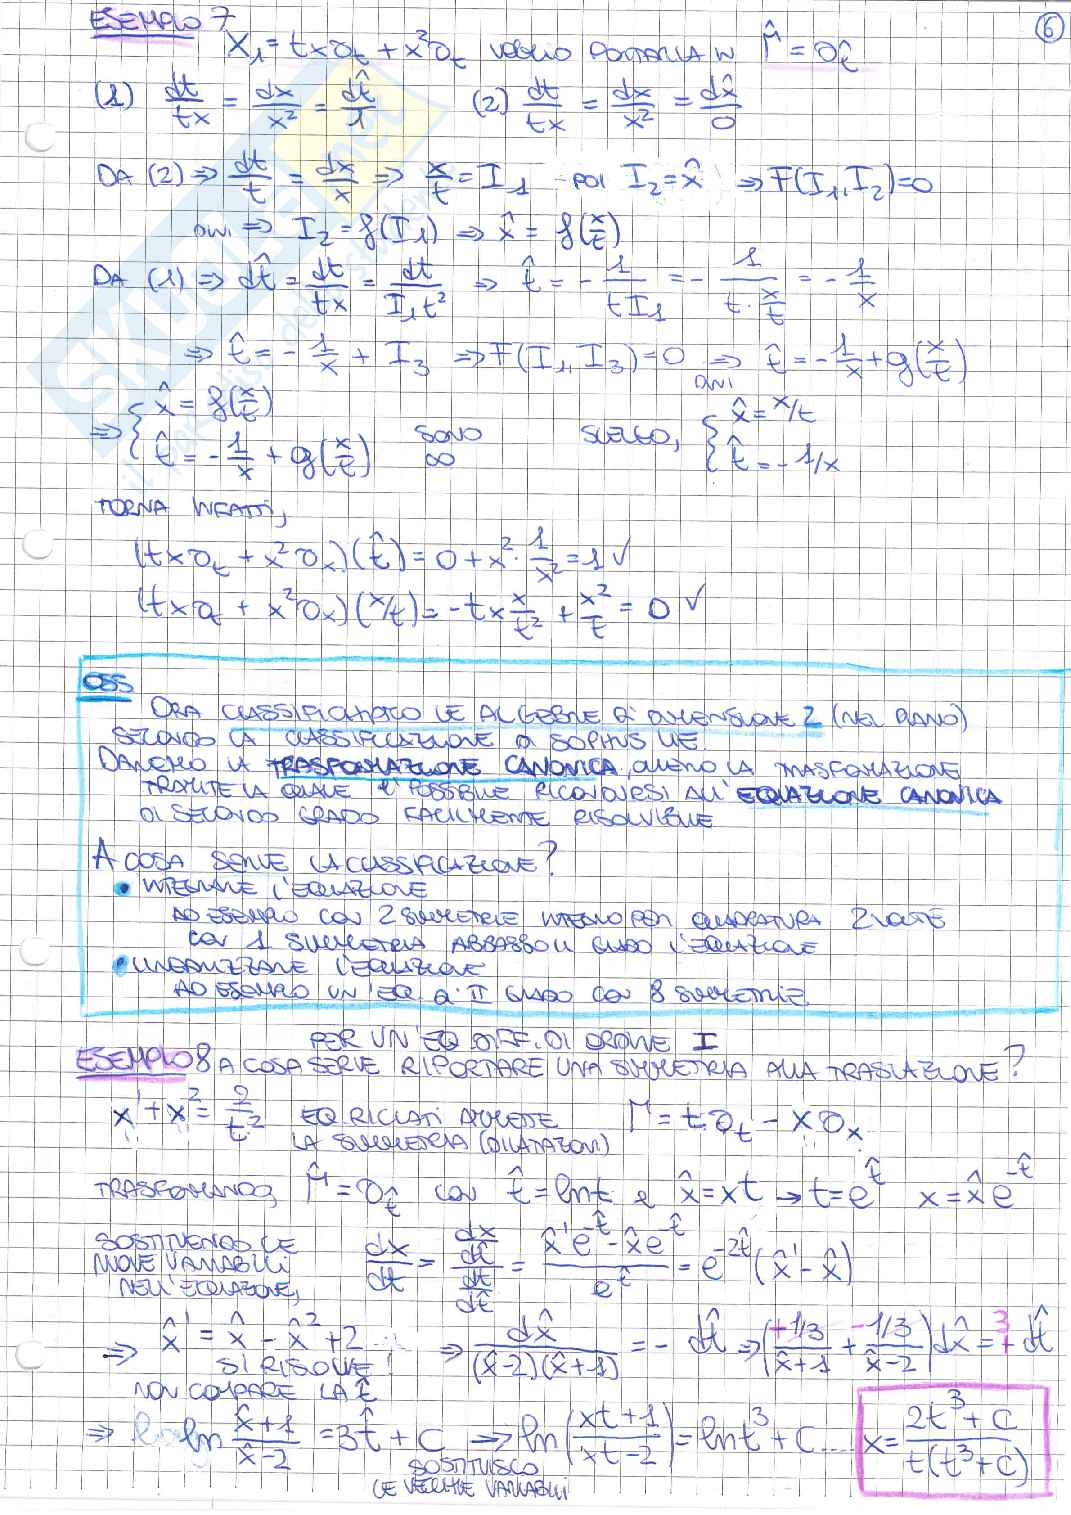 6
ESEMPIO 7
X₁ = tx∂t + x²∂t VOGLIO PORTARLA IN Γ̂ = ∂t̂
(1) dt/tx = dx/x² = dt̂/1 (2) dt/tx = dx/x² = dx̂/0
DA (2) ⇒ dt/t = dx/x ⇒ x/t = I₁ POI I₂ = x̂ ⇒ F(I₁, I₂) = 0
DINI ⇒ I₂ = f(I₁) ⇒ x̂ = f(x/t)
DA (1) ⇒ dt̂ = dt/tx = dt/I₁t² ⇒ t̂ = - 1/tI₁ = - 1/(t · x/t) = - 1/x
⇒ t̂ = - 1/x + I₃ ⇒ F(I₁, I₃) = 0 ⇒ DINI t̂ = - 1/x + g(x/t)
⇒ { x̂ = f(x/t) t̂ = - 1/x + g(x/t) SONO ∞ SCELGO, { x̂ = x/t t̂ = - 1/x
TORNA INFATTI,
(tx∂t + x²∂x)(t̂) = 0 + x² · 1/x² = 1 ✓
(tx∂t + x²∂x)(x/t) = - tx x/t² + x²/t = 0 ✓
OSS
ORA CLASSIFICHIAMO LE ALGEBRE DI DIMENSIONE 2 (NEL PIANO)
SECONDO LA CLASSIFICAZIONE DI SOPHUS LIE.
DAREMO LA TRASFORMAZIONE CANONICA, OVVERO LA TRASFORMAZIONE
TRAMITE LA QUALE E' POSSIBILE RICONDURSI ALL'EQUAZIONE CANONICA
DI SECONDO GRADO FACILMENTE RISOLVIBILE
A COSA SERVE LA CLASSIFICAZIONE?
• INTEGRARE L'EQUAZIONE
AD ESEMPIO CON 2 SIMMETRIE INTEGRO PER QUADRATURA 2 VOLTE
CON 1 SIMMETRIA ABBASSO IL GRADO L'EQUAZIONE
• LINEARIZZARE L'EQUAZIONE
AD ESEMPIO UN'EQ DI II GRADO CON 8 SIMMETRIE
PER UN'EQ DIFF. DI ORDINE I
ESEMPIO 8 A COSA SERVE RIPORTARE UNA SIMMETRIA ALLA TRASLAZIONE?
x' + x² = 2/t² EQ RICCATI AMMETTE Γ = t∂t - x∂x
LA SIMMETRIA (DILATAZIONI)
TRASFORMANDO, Γ̂ = ∂t̂ CON t̂ = ln t e x̂ = xt → t = e^t̂ x = x̂e^-t̂
SOSTITUENDO LE
NUOVE VARIABILI
NELL'EQUAZIONE,
dx/dt = (dx/dt̂)/(dt/dt̂) = (x̂'e^-t̂ - x̂e^-t̂)/e^t̂ = e^-2t̂(x̂' - x̂)
⇒ x̂' = x̂ - x̂² + 2 ⇒ dx̂/((x̂-2)(x̂+1)) = - dt̂ ⇒ (+1/3/(x̂+1) + -1/3/(x̂-2)) dx̂ = + 3 dt̂
SI RISOLVE!
NON COMPARE LA t̂
⇒ ln (x̂+1)/(x̂-2) = 3t̂ + C → ln((xt+1)/(xt-2)) = ln t³ + C .... x = (2t³ + C)/(t(t³ + C))
SOSTITUISCO
LE VECCHIE VARIABILI